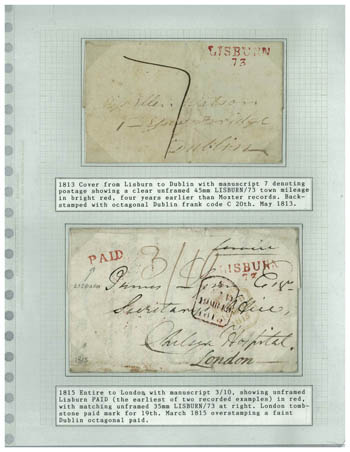 LISBURN
73
7
Dublin
1813 Cover from Lisburn to Dublin with manuscript 7 denoting
postage showing a clear unframed 45mm LISBURN/73 town mileage
in bright red, four years earlier than Moxter records. Back-
stamped with octagonal Dublin frank code C 20th. May 1813.
PAID
3/10
LISBURN
73
Esqr
Office,
Chelsea Hospital,
London
1815 Entire to London with manuscript 3/10, showing unframed
Lisburn PAID (the earliest of two recorded examples) in red,
with matching unframed 35mm LISBURN/73 at right. London tomb-
stone paid mark for 19th. March 1815 overstamping a faint
Dublin octagonal paid.